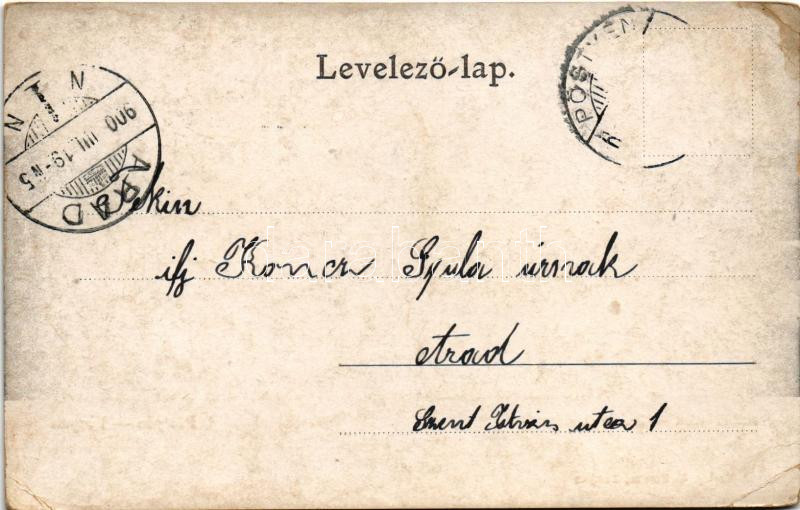 Levelező-lap.
PÖSTYÉN
ARAD
900 VIII 19 N5
Tekin
ifj Koncz Gyula úrnak
Arad
Szent István utca 1